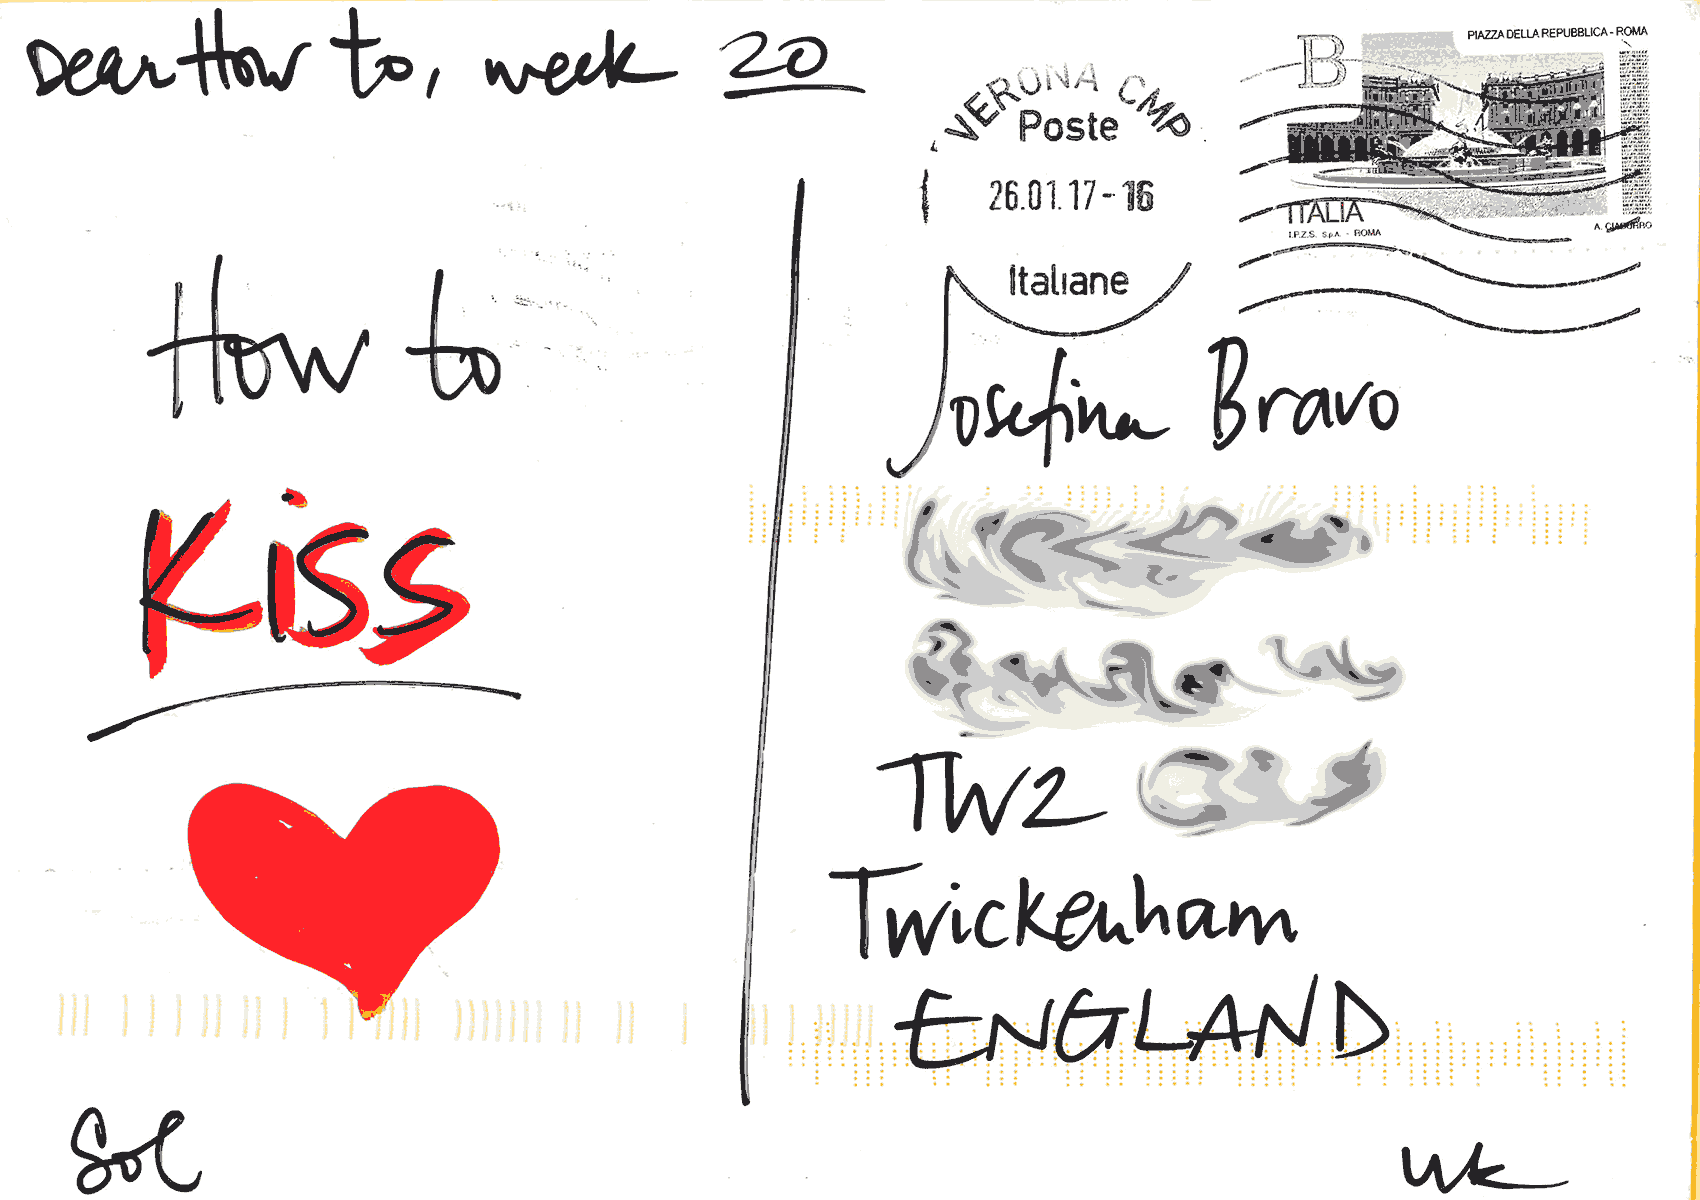 Dear How to, week 20
How to
Kiss
Sol
VERONA CMP
Poste
26.01.17-16
Italiane
B
PIAZZA DELLA REPUBBLICA - ROMA
ITALIA
I.P.Z.S. S.p.A. - ROMA
Josefina Bravo
TW2
Twickenham
ENGLAND
UK